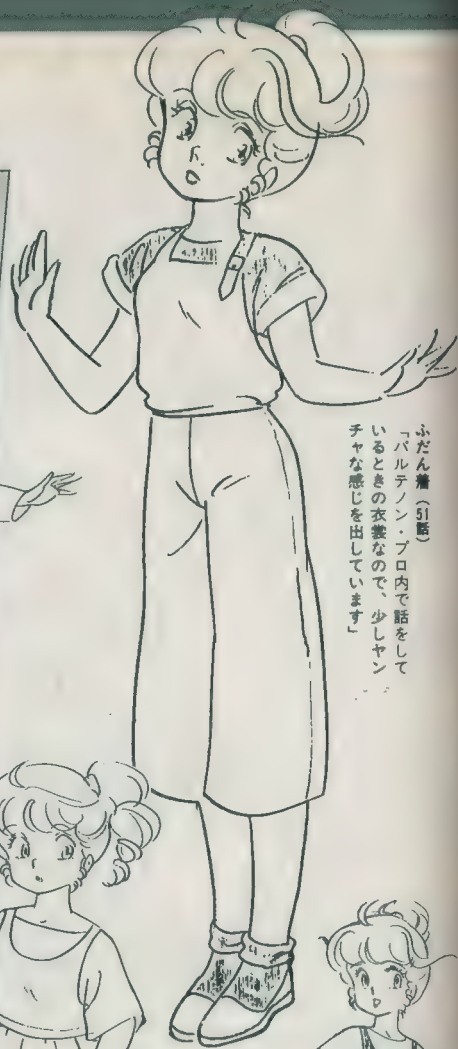 ふだん着（51話）
「パルテノン・プロ内で話をして
いるときの衣裳なので、少しヤン
チャな感じを出しています」